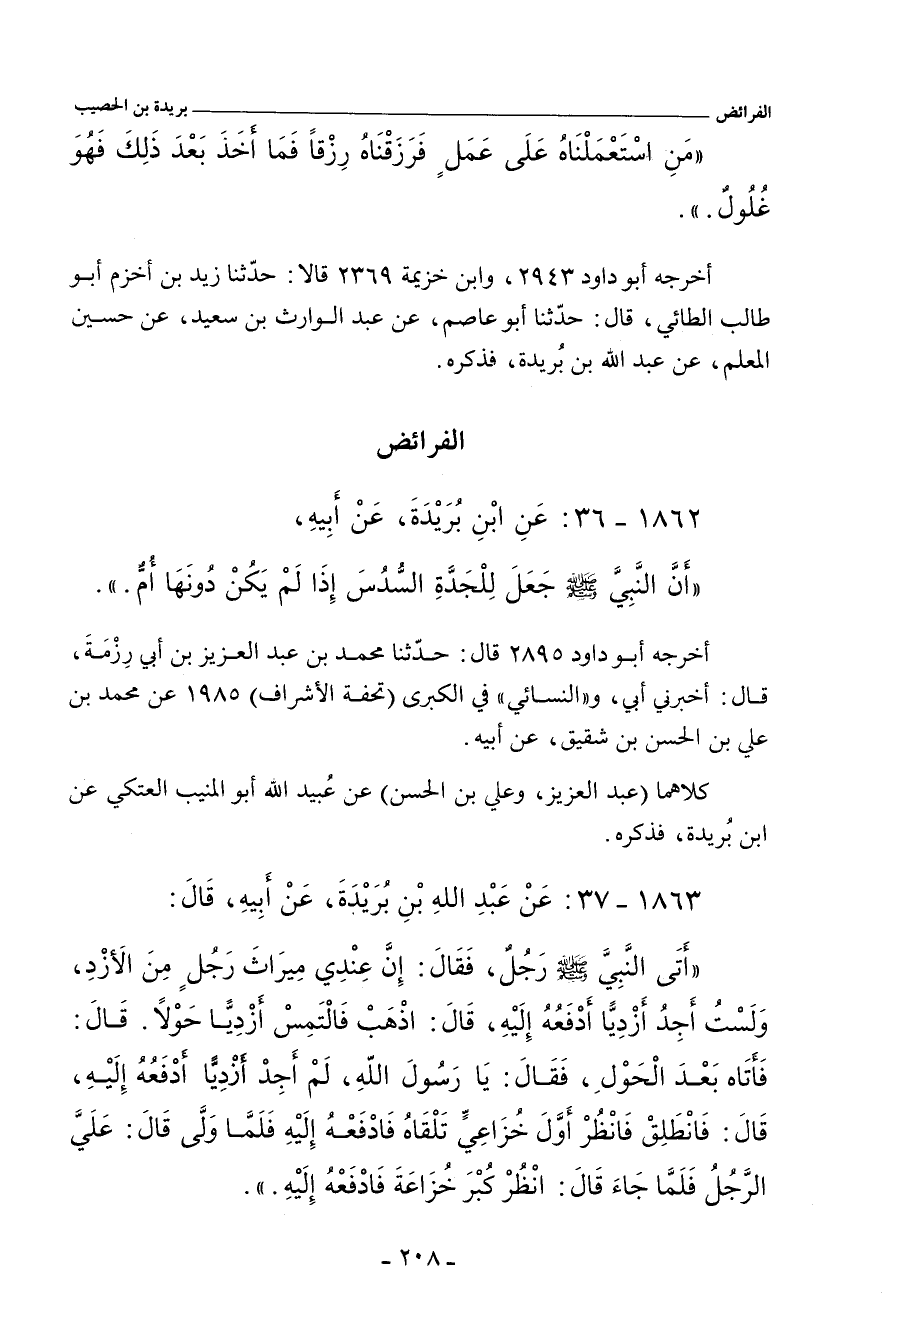 الفرائض ــــــــــــــــــــــــــــــــ بريدة بن الحصيب
«مَنِ اسْتَعْمَلْنَاهُ عَلَى عَمَلٍ فَرَزَقْنَاهُ رِزْقاً فَمَا أَخَذَ بَعْدَ ذَلِكَ فَهُوَ
غُلُولٌ.».
أخرجه أبو داود ٢٩٤٣، وابن خزيمة ٢٣٦٩ قالا: حدّثنا زيد بن أخزم أبو
طالب الطائي، قال: حدّثنا أبو عاصم، عن عبد الوارث بن سعيد، عن حسين
المعلم، عن عبد الله بن بُريدة، فذكره.
الفرائض
١٨٦٢ - ٣٦: عَنِ ابْنِ بُرَيْدَةَ، عَنْ أَبِيهِ،
«أَنَّ النَّبِيَّ ﷺ جَعَلَ لِلْجَدَّةِ السُّدُسَ إِذَا لَمْ يَكُنْ دُونَهَا أُمٌّ.».
أخرجه أبو داود ٢٨٩٥ قال: حدّثنا محمد بن عبد العزيز بن أبي رِزْمَةَ،
قال: أخبرني أبي، و«النسائي» في الكبرى (تحفة الأشراف) ١٩٨٥ عن محمد بن
علي بن الحسن بن شقيق، عن أبيه.
كلاهما (عبد العزيز، وعلي بن الحسن) عن عُبيد الله أبو المنيب العتكي عن
ابن بُريدة، فذكره.
١٨٦٣ - ٣٧: عَنْ عَبْدِ اللهِ بْنِ بُرَيْدَةَ، عَنْ أَبِيهِ، قَالَ:
«أَتَى النَّبِيَّ ﷺ رَجُلٌ، فَقَالَ: إِنَّ عِنْدِي مِيرَاثَ رَجُلٍ مِنَ الأَزْدِ،
وَلَسْتُ أَجِدُ أَزْدِيًّا أَدْفَعُهُ إِلَيْهِ، قَالَ: اذْهَبْ فَالْتَمِسْ أَزْدِيًّا حَوْلاً. قَالَ:
فَأَتَاه بَعْدَ الْحَوْلِ، فَقَالَ: يَا رَسُولَ اللّهِ، لَمْ أَجِدْ أَزْدِيًّا أَدْفَعُهُ إِلَيْهِ،
قَالَ: فَانْطَلِقْ فَانْظُرْ أَوَّلَ خُزَاعِيٍّ تَلْقَاهُ فَادْفَعْهُ إِلَيْهِ فَلَمَّا وَلَّى قَالَ: عَلَيَّ
الرَّجُلُ فَلَمَّا جَاءَ قَالَ: انْظُرْ كُبْرَ خُزَاعَةَ فَادْفَعْهُ إِلَيْهِ.».
- ٢٠٨ -